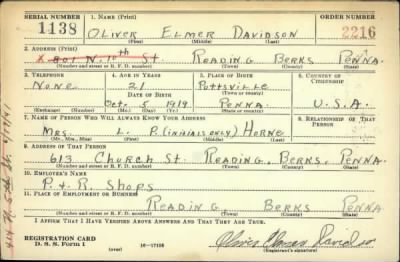 SERIAL NUMBER 1. Name (Print) ORDER NUMBER
1438 OLIVER ELMER DAVIDSON 2216
(First) (Middle) (Last)
2. Address (Print)
x 801 N. 10th St READING BERKS PENNA.
(Number and street or R. F. D. number) (Town) (County) (State)
3. Telephone 4. Age in Years 5. Place of Birth 6. Country of Citizenship
NONE 21 POTTSVILLE
Date of Birth (Town or county)
OCT. 5 1919 PENNA. U.S.A.
(Exchange) (Number) (Mo.) (Day) (Yr.) (State or country)
7. Name of Person Who Will Always Know Your Address 8. Relationship of That Person
MRS. L. P. (INITIALS ONLY) HORNE
(Mr., Mrs., Miss) (First) (Middle) (Last)
9. Address of That Person
613 CHURCH St. READING, BERKS, PENNA
(Number and street or R. F. D. number) (Town) (County) (State)
10. Employer's Name
P. & R. SHOPS
11. Place of Employment or Business
READING, BERKS PENNA
(Number and street or R. F. D. number) (Town) (County) (State)
I Affirm That I Have Verified Above Answers and That They Are True.
REGISTRATION CARD
D. S. S. Form 1 (over) 16—17105 Oliver Elmer Davidson
(Registrant's signature)
414 N. 5th St.